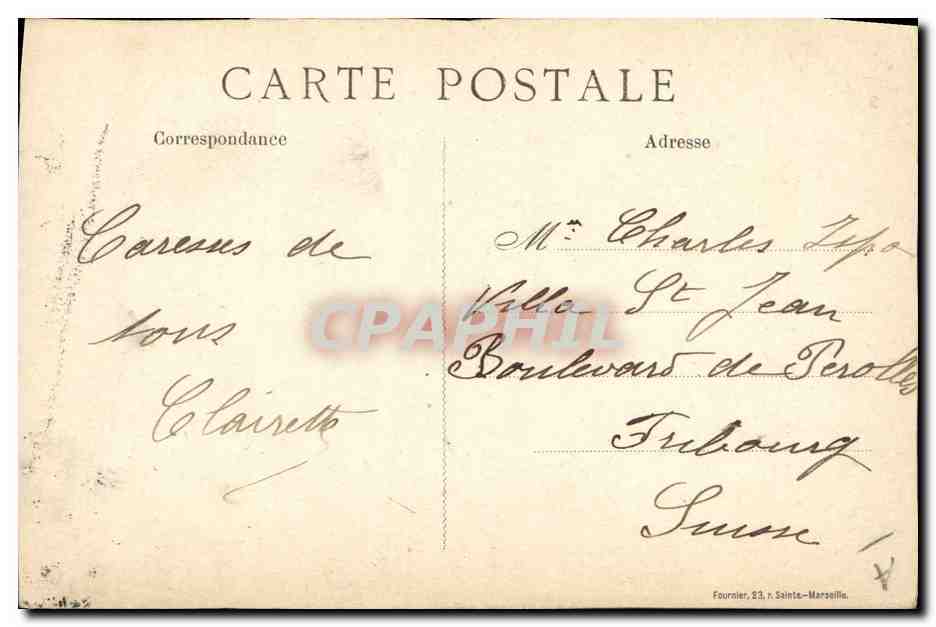 CARTE POSTALE
Correspondance
Caresses de
tous
Clairette
Adresse
Mr: Charles
Villa St Jean
Boulevard de Perolles
Fribourg
Suisse
CPAPHIL
Fournier, 23, r. Sainte.-Marseille.